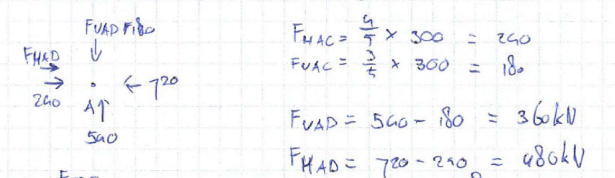 FVAD F180
FHAD
240
A
← 720
540
FHAC = 4/5 × 300 = 240
FVAC = 3/5 × 300 = 180
FVAD = 540 - 180 = 360kN
FHAD = 720 - 240 = 480kN